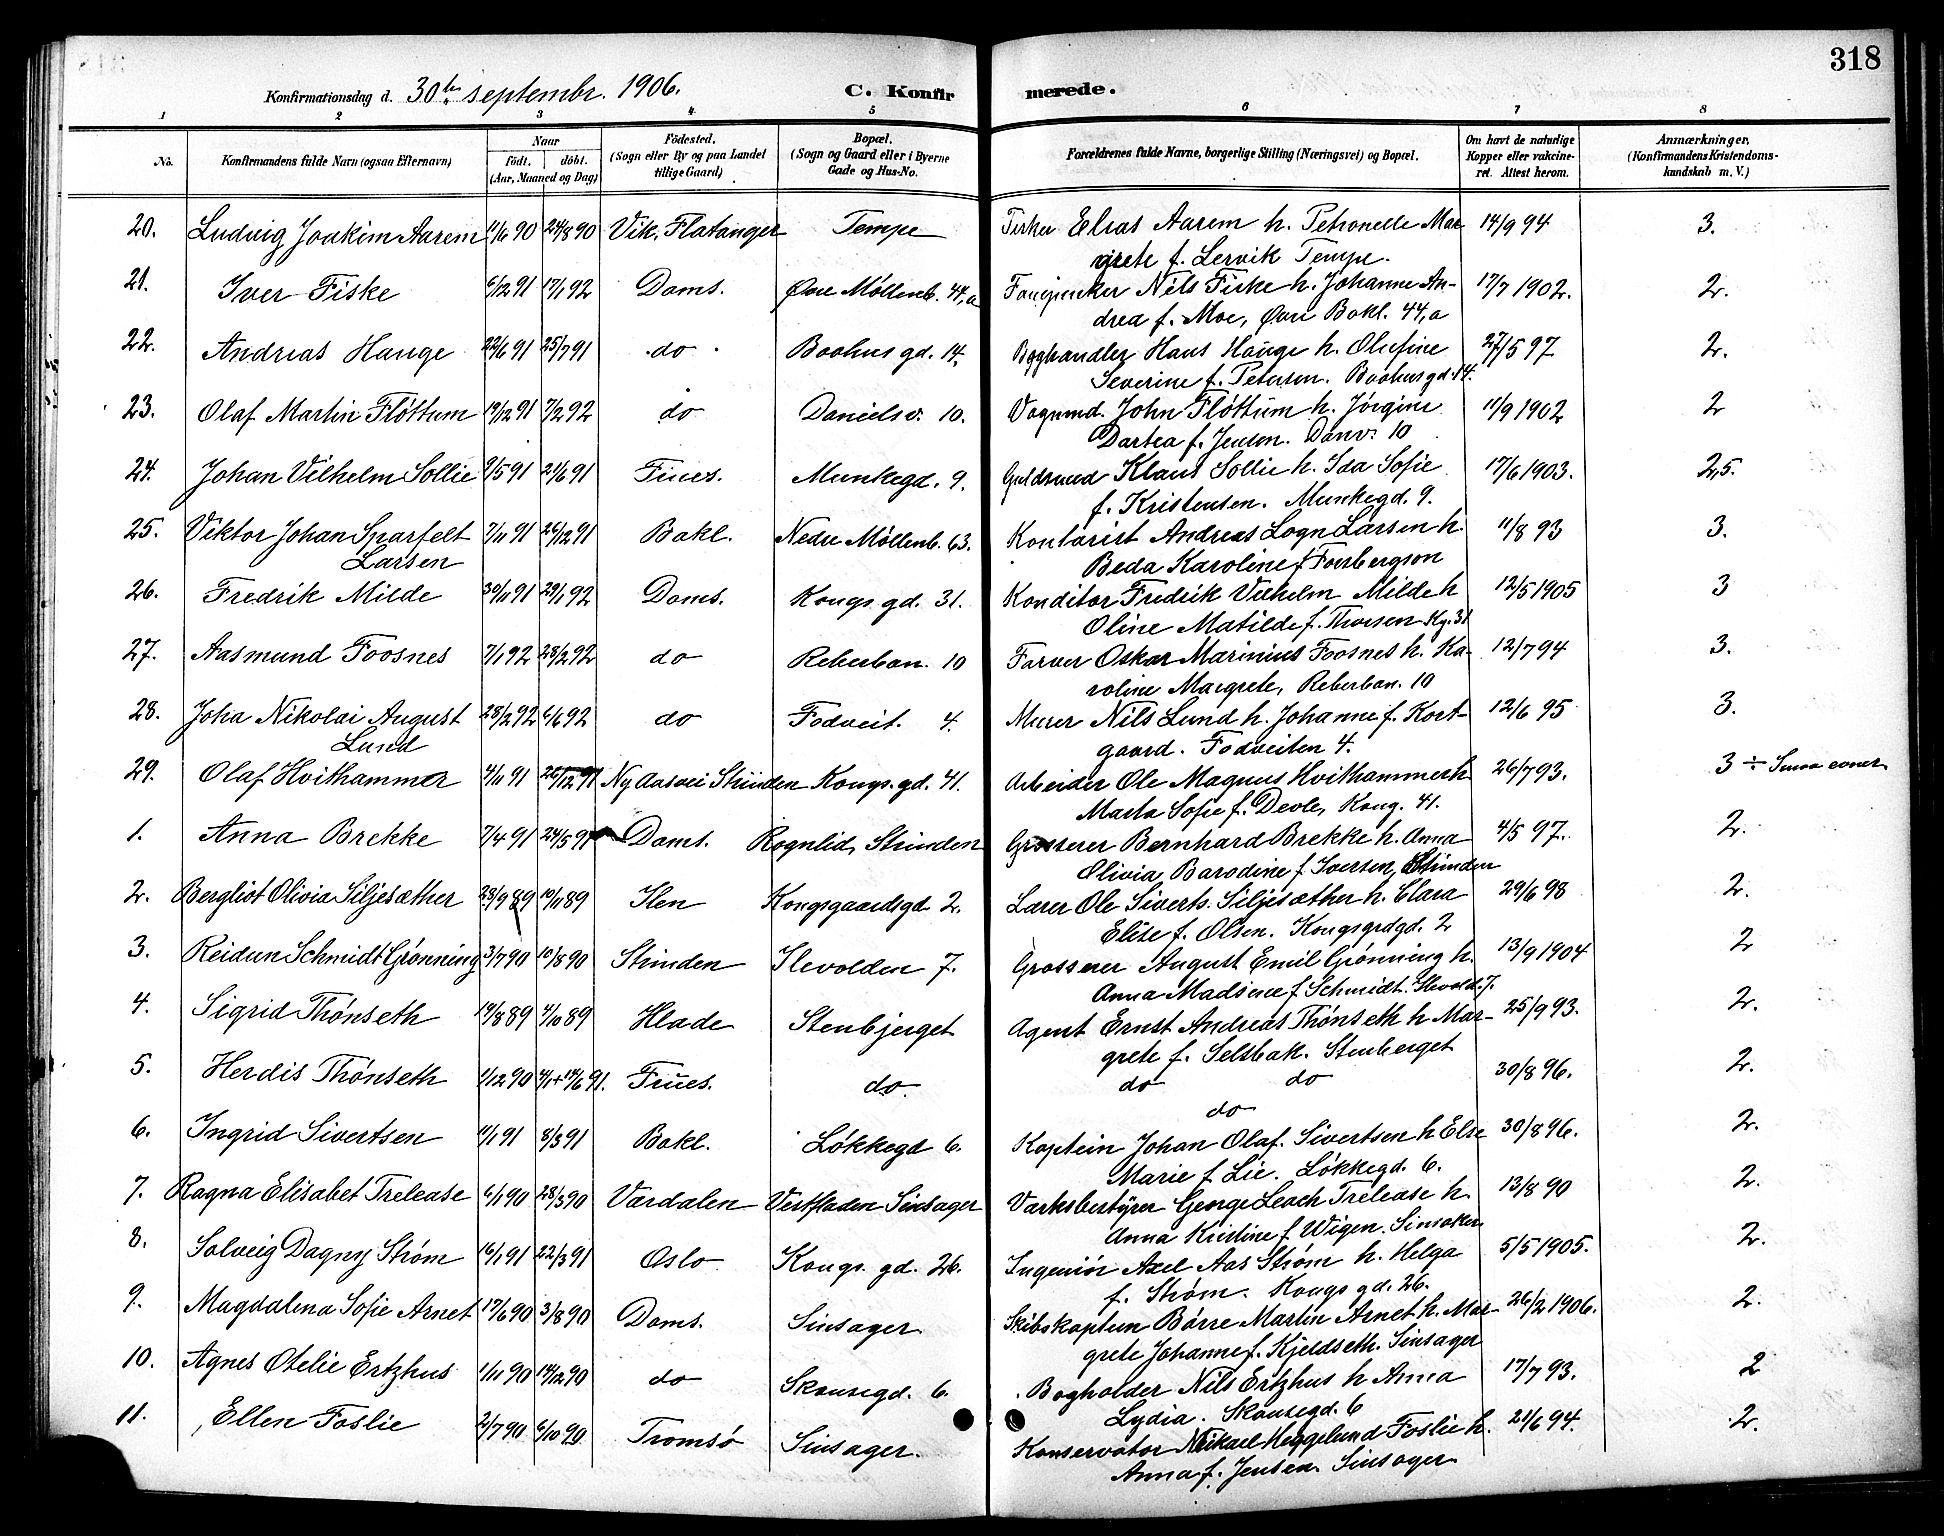 318
Konfirmationsdag d. 30te septembr. 1906. C. Konfirmerede.
1 2 3 4 5 6 7 8
No. Konfirmandens fulde Navn (ogsaa Efternavn) Naar født. døbt. (Aar, Maaned og Dag) Fødested. (Sogn eller By og paa Landet tillige Gaard) Bopæl. (Sogn og Gaard eller i Byerne Gade og Hus-No. Forældrenes fulde Navne, borgerlige Stilling (Næringsvei) og Bopæl. Om havt de naturlige Kopper eller vakcineret. Attest herom. Anmærkninger, (Konfirmandens Kristendomskundskab m. V.)
20. Ludvig Joakim Aarem 11/6 90 24/8 90 Vik, Flatanger Tempe Fisker Elias Aarem h. Petronelle Mar- 14/9 94 3.
grete f. Lervik Tempe.
21. Iver Fiske 6/12 91 17/1 92 Doms. Øvre Møllenb. 44,a Nils Fiske h. Johanne An- 17/7 1902. 2.
drea f. Moe, Øvre Bakl. 44,a
22. Andreas Hauge 22/6 91 25/7 91 do Baahus gd. 14. Boghandler Hans Hauge h. Olufine 27/5 97 2.
Severine f. Petersen. Baahus gd. 14.
23. Olaf Martin Fløttum 19/12 91 7/2 92 do Danielsv. 10. Vognmd. John Fløttum h. Jörgine 11/9 1902 2
Dortea f. Jenson. Danv. 10
24. Johan Vilhelm Sollie 9/5 91 21/6 91 Frues. Munkegd. 9. Guldsmed Klaus Sollie h. Ida Sofie 17/6 1903. 2,5.
f. Kristensen. Munkegd. 9.
25. Viktor Johan Sparfelt 7/11 91 26/12 91 Bakl. Nedre Møllenb. 63. Kontorist Andreas Logn Larsen h. 11/8 93 3.
Larsen Beda Karoline f. Forsbergson
26. Fredrik Milde 30/11 91 29/1 92 Doms. Kongs gd. 31. Konditor Fredrik Vilhelm Milde h 12/5 1905 3
Oline Matilde f. Thorsen Kg. 31
27. Aasmund Foosnes 7/1 92 28/2 92 do Reberban. 10 Farver Oskar Marinius Foosnes h. Ka- 12/7 94 3.
roline Margrete, Reberban. 10
28. Joha Nikolai August 28/2 92 6/6 92 do Fodveit. 4. Murer Nils Lund h. Johanne f. Kort- 12/6 95 3.
Lund gaard. Fodveiten 4.
29. Olaf Hvithammer 4/11 91 26/12 91 Ny Aasvei Strinden Kongs. gd. 41. Arbeider Ole Magnus Hvithammer h 26/7 93. 3 ÷ Smaa evner
Marta Sofie f. Devle, Kong. 41.
1. Anna Brekke 7/4 91 24/5 91 Doms. Rognlid, Strinden Grosserer Bernhard Brekke h. Anna 4/5 97. 2.
Olivia Barodine f Iversen, Strinden
2. Bergliot Olivia Siljesæther 28/9 89 10/11 89 Ilen Kongsgaardsgd 2. Lærer Ole Siverts. Siljesæther h. Clara 29/6 98 2.
Elise f. Olsen. Kongsgrdgd. 2
3. Reidun Schmidt Grønning 3/7 90 10/8 90 Strinden Ilevolden 7. Grosserer August Emil Grønning h. 13/9 1904 2
Anna Madsine f Schmidt. Ilevold. 7.
4. Sigrid Thönseth 14/8 89 4/10 89 Hlade Stenbjerget Agent Ernst Andreas Thönseth h Mar- 25/9 93. 2.
grete f. Selsbak. Stenberget
5. Herdis Thönseth 1/12 90 4/1 + 14/6 91. Frues. do. do do 30/8 96. 2.
do
6. Ingrid Sivertsen 11/1 91 8/3 91 Bakl. Løkkegd 6. Kaptein Johan Olaf. Sivertsen h Else 30/8 96. 2.
Marie f Lie. Løkkegd. 6.
7. Ragna Elisabet Trelease 6/1 90 28/3 90 Værdalen Vestfladen Sinsager Værksbestyrer George Leach Trelease h. 13/8 90 2.
Anna Kristine f Wigen. Sinsaker
8. Solveig Dagny Strøm 16/1 91 22/3 91 Oslo Kongs. gd. 26. Ingeniör Axel Aas Strøm h. Helga 5/5 1905. 2.
f. Strøm. Kongs gd. 26.
9. Magdalena Sofie Arnet 17/6 90 3/8 90 Doms. Sinsager Skibskaptein Børre Martin Arnet h. Mar- 26/2 1906. 2.
grete Johanne f. Kjeldseth. Sinsager
10. Agnes Otelie Ertzhus 1/11 90 14/12 90 do Skansegd. 6. Bogholder Nils Ertzhus h Anna 17/7 93. 2
Lydia. Skansegd. 6
11. Ellen Foslie 2/7 90 6/10 90 Tromsø Sinsager. Konservator Mikael Heggelund Foslie h. 21/6 94. 2.
Anna f. Jensen Sinsager